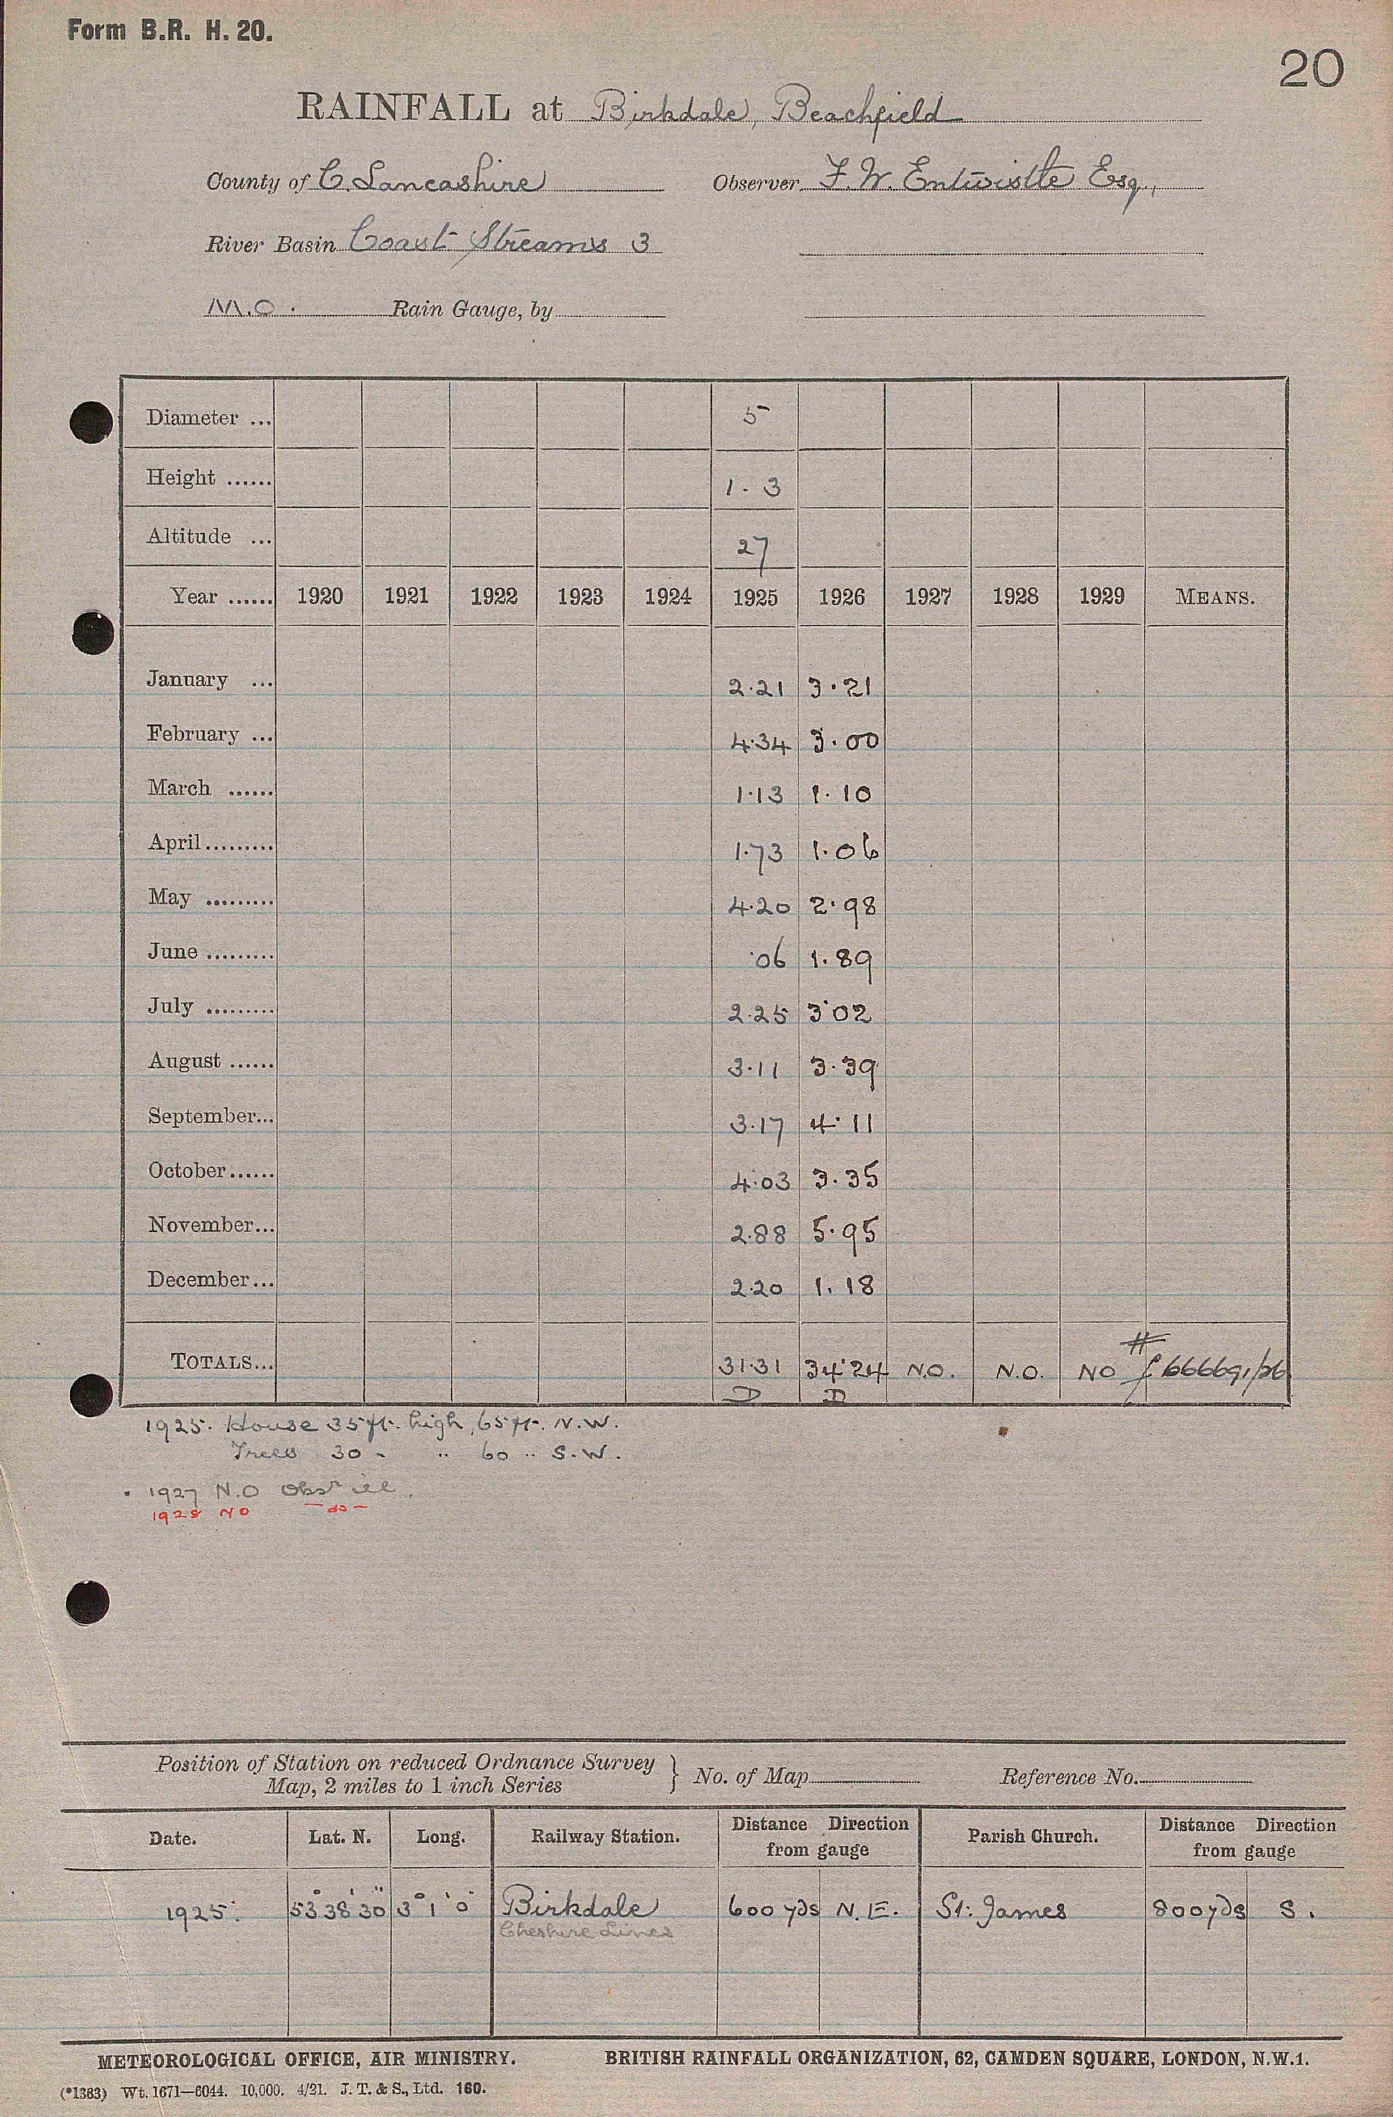 Form B.R. H. 20.
20
RAINFALL at Birkdale, Beachfield
County of C. Lancashire Observer F. W. Entwistle Esq.,
River Basin Coast Streams 3
M.O. Rain Gauge, by
Diameter ... 5
Height ...... 1. 3
Altitude ... 27
Year ...... 1920 1921 1922 1923 1924 1925 1926 1927 1928 1929 MEANS.
January ... 2.21 3.21
February ... 4.34 3.00
March ...... 1.13 1.10
April ......... 1.73 1.06
May ......... 4.20 2.98
June ......... .06 1.89
July ......... 2.25 3.02
August ...... 3.11 3.39
September... 3.17 4.11
October...... 4.03 3.35
November... 2.88 5.95
December... 2.20 1.18
TOTALS... 31.31 34.24 N.O. N.O. NO 666691/26
D D
1925. House 35 ft. high, 65 ft. N.W.
Trees 30 " " 60 " S.W.
1927 N.O Obsr ill.
1928 NO —do—
Position of Station on reduced Ordnance Survey
Map, 2 miles to 1 inch Series } No. of Map Reference No.
Date. Lat. N. Long. Railway Station. Distance Direction from gauge Parish Church. Distance Direction from gauge
1925. 53° 38' 30" 3° 1' 0" Birkdale 600 yds N.E. St. James 800 yds S.
Cheshire Lines
METEOROLOGICAL OFFICE, AIR MINISTRY. BRITISH RAINFALL ORGANIZATION, 62, CAMDEN SQUARE, LONDON, N.W.1.
(*1383) Wt. 1671—6044. 10,000. 4/21. J. T. & S., Ltd. 160.